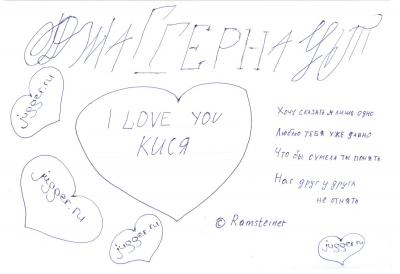 ДЖАГГЕРНАУТ
jugger.ru
I LOVE YOU
КИСЯ
Хочу сказать я лишь одно
Люблю тебя уже давно
Что бы сумела ты понять
Нас друг у друга
не отнять
jugger.ru
jugger.ru
© Ramsteiner
jugger.ru